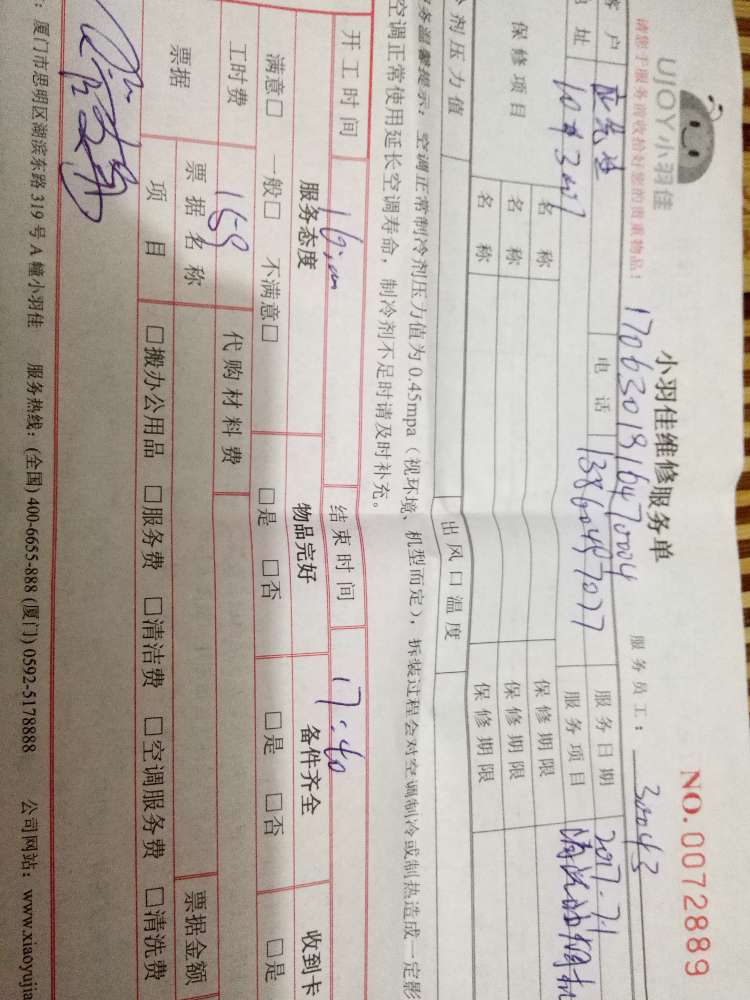 UJOY小羽佳
小羽佳维修服务单
NO. 0072889
请您于服务前收拾好您的贵重物品!
1706301916470004
服务员工: 30043
客户
电话 13860497077
服务日期 2017-7-1
址 10#3007
服务项目 清洗油烟机
保修项目
名称 保修期限
名称 保修期限
名称 保修期限
剂压力值
出风口温度
务温馨提示:空调正常制冷剂压力值为 0.45mpa(视环境、机型而定),拆装过程会对空调制冷或制热造成一定影
空调正常使用延长空调寿命,制冷剂不足时请及时补充。
开工时间 16:00 结束时间 17:40
服务态度 物品完好 备件齐全 收到卡
满意□ 一般□ 不满意□ □是 □否 □是 □否 □是
工时费 159 代购材料费
票据 票据名称 票据金额
项目 □搬办公用品 □服务费 □清洁费 □空调服务费 □清洗费
:厦门市思明区湖滨东路 319 号 A 幢小羽佳 服务热线:(全国) 400-6655-888 (厦门) 0592-5178888 公司网站:www.xiaoyujia